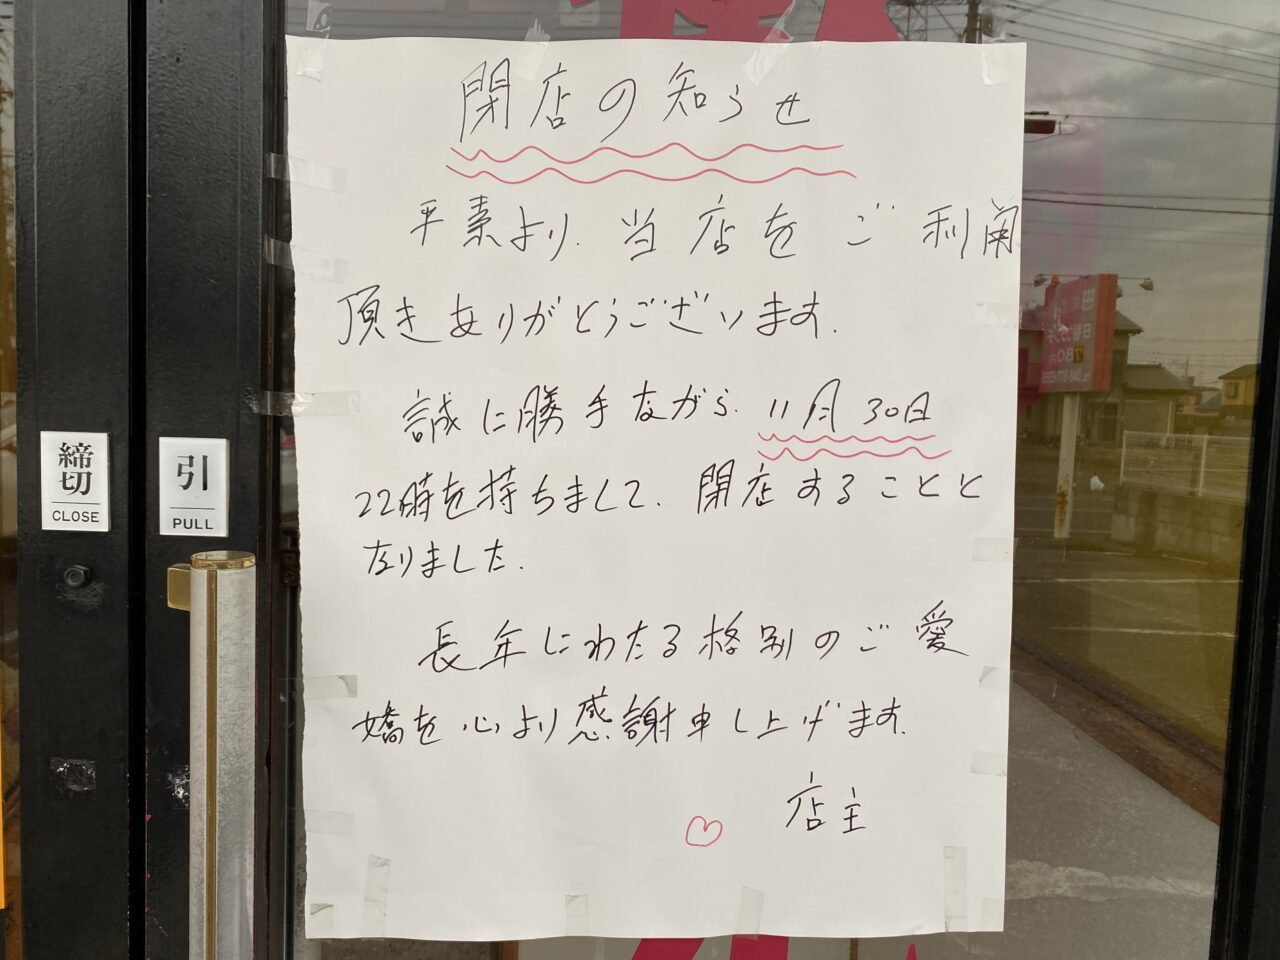 閉店の知らせ
平素より、当店をご利用
頂きありがとうございます。
誠に勝手ながら、11月30日
22時を持ちまして、閉店することと
なりました。
長年にわたる格別のご愛
嬌を心より感謝申し上げます。
店主
締切
CLOSE
引
PULL